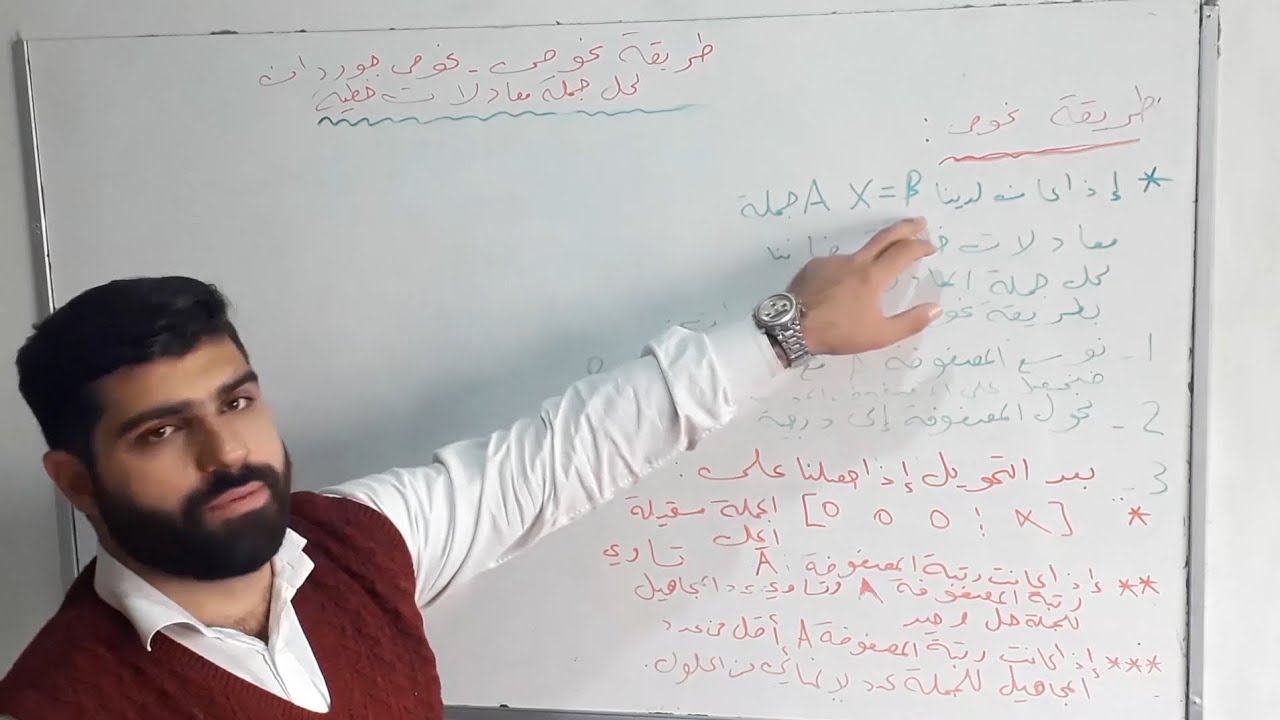 طريقة غوص - غوص جوردان
لحل جملة معادلات خطية
طريقة غوص :
* إذا كانت لدينا A X = B جملة
معادلات فإننا
لحل جملة
بطريقة
1 - نوسع المصفوفة A مع
2 - نحول المصفوفة إلى درجية
3 - بعد التحويل إذا حصلنا على :
* [0 0 0 ¦ X] الجملة مستحيلة
الحل
** إذا كانت رتبة المصفوفة A تساوي
رتبة المصفوفة A وتساوي عدد المجاهيل
للجملة حل وحيد
*** إذا كانت رتبة المصفوفة A أقل من عدد
المجاهيل للجملة عدد لانهائي من الحلول.